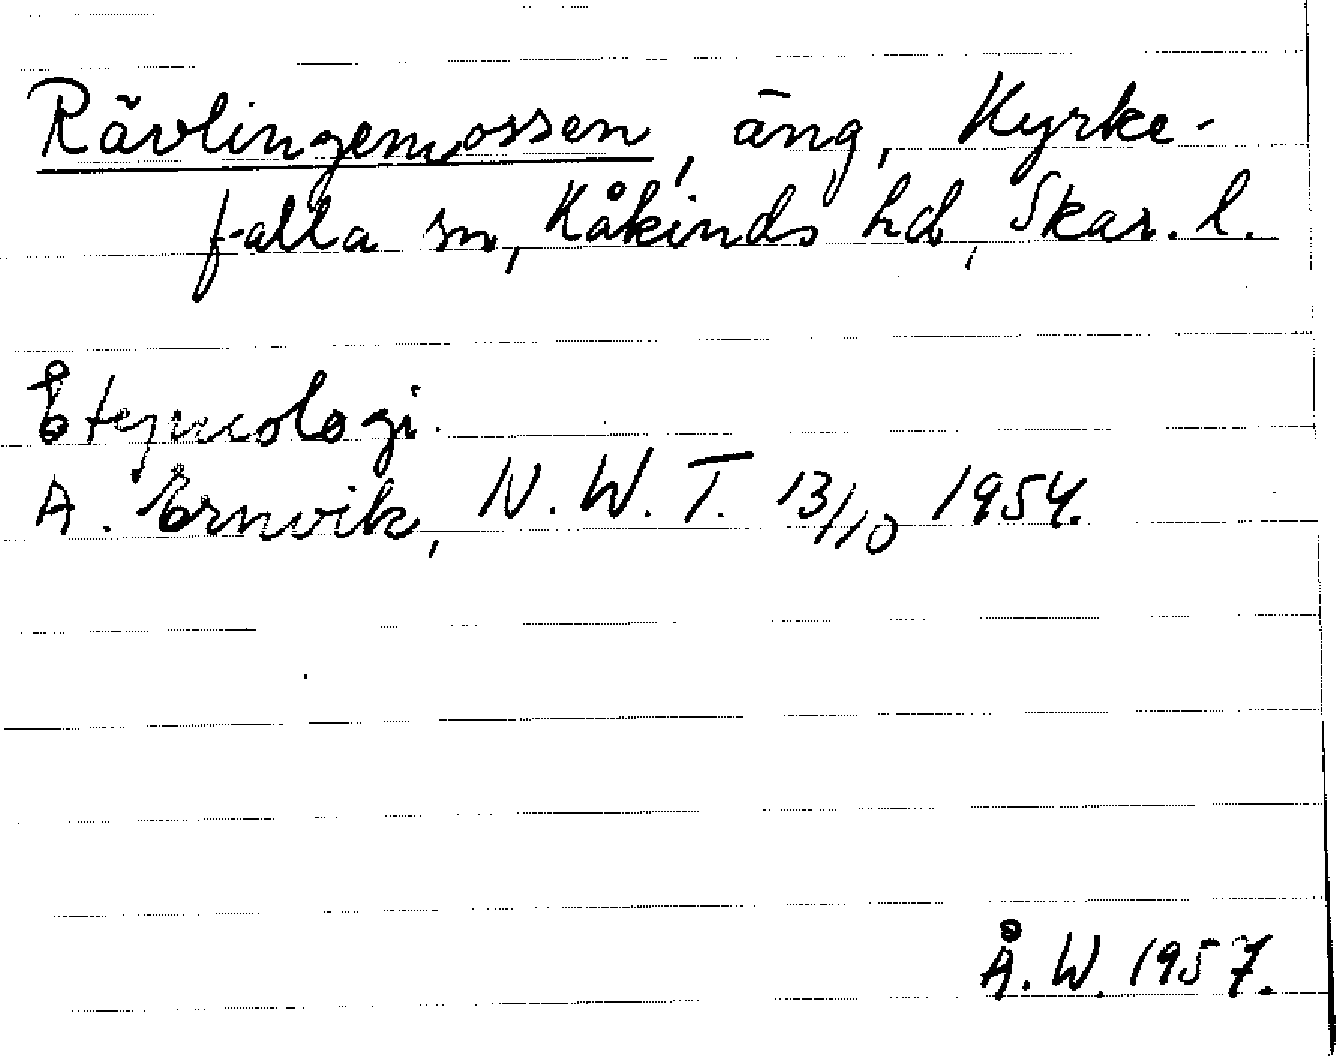 Rävlingemossen, äng, Kyrke-
falla sn, Kåkinds hd, Skar. l.
Etymologi.
A. Ernvik, N. W. T. 13/10 1954.
Å. W. 1957.